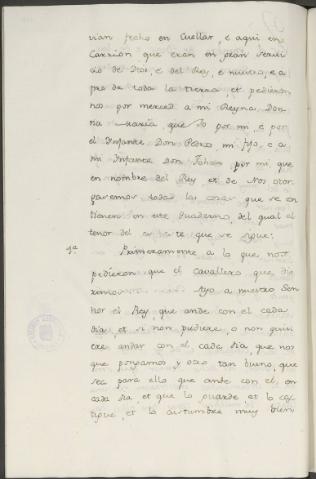 vian fecho en Cuellar, e aqui en
Carrion que eran en gran servi
cio de Dios, e del Rey, e nuestro, e a
pro de toda la tierra, et pedieron
nos por merced a mi Reyna Don
na Maria, que Yo por mi, e por
el Infante Don Pedro mi fijo, e a
mi Infante Don Johan por mi, que
en nombre del Rey et de Nos otor
garemos todas las cosas que se con
tienen en este Quaderno, del qual el
tenor del es este que se sigue:
1ª Primeramente a lo que nos
pedieron que el Cavallero que die
remos Ayo a nuestro Sen
nor el Rey, que ande con el cada
dia, et si non pudiere, o non quisi
ere andar con el cada dia, que nos
que pongamos y otro tan bueno, que
sea para ello que ande con el, en
cada dia, et que lo guarde et lo cas
tigue, et lo acostumbre muy bien